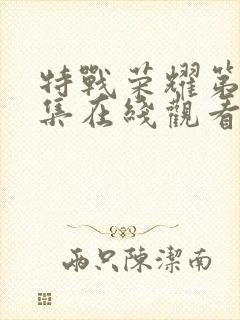 特戰荣耀第
集在綫觀看
兩只陳潔南